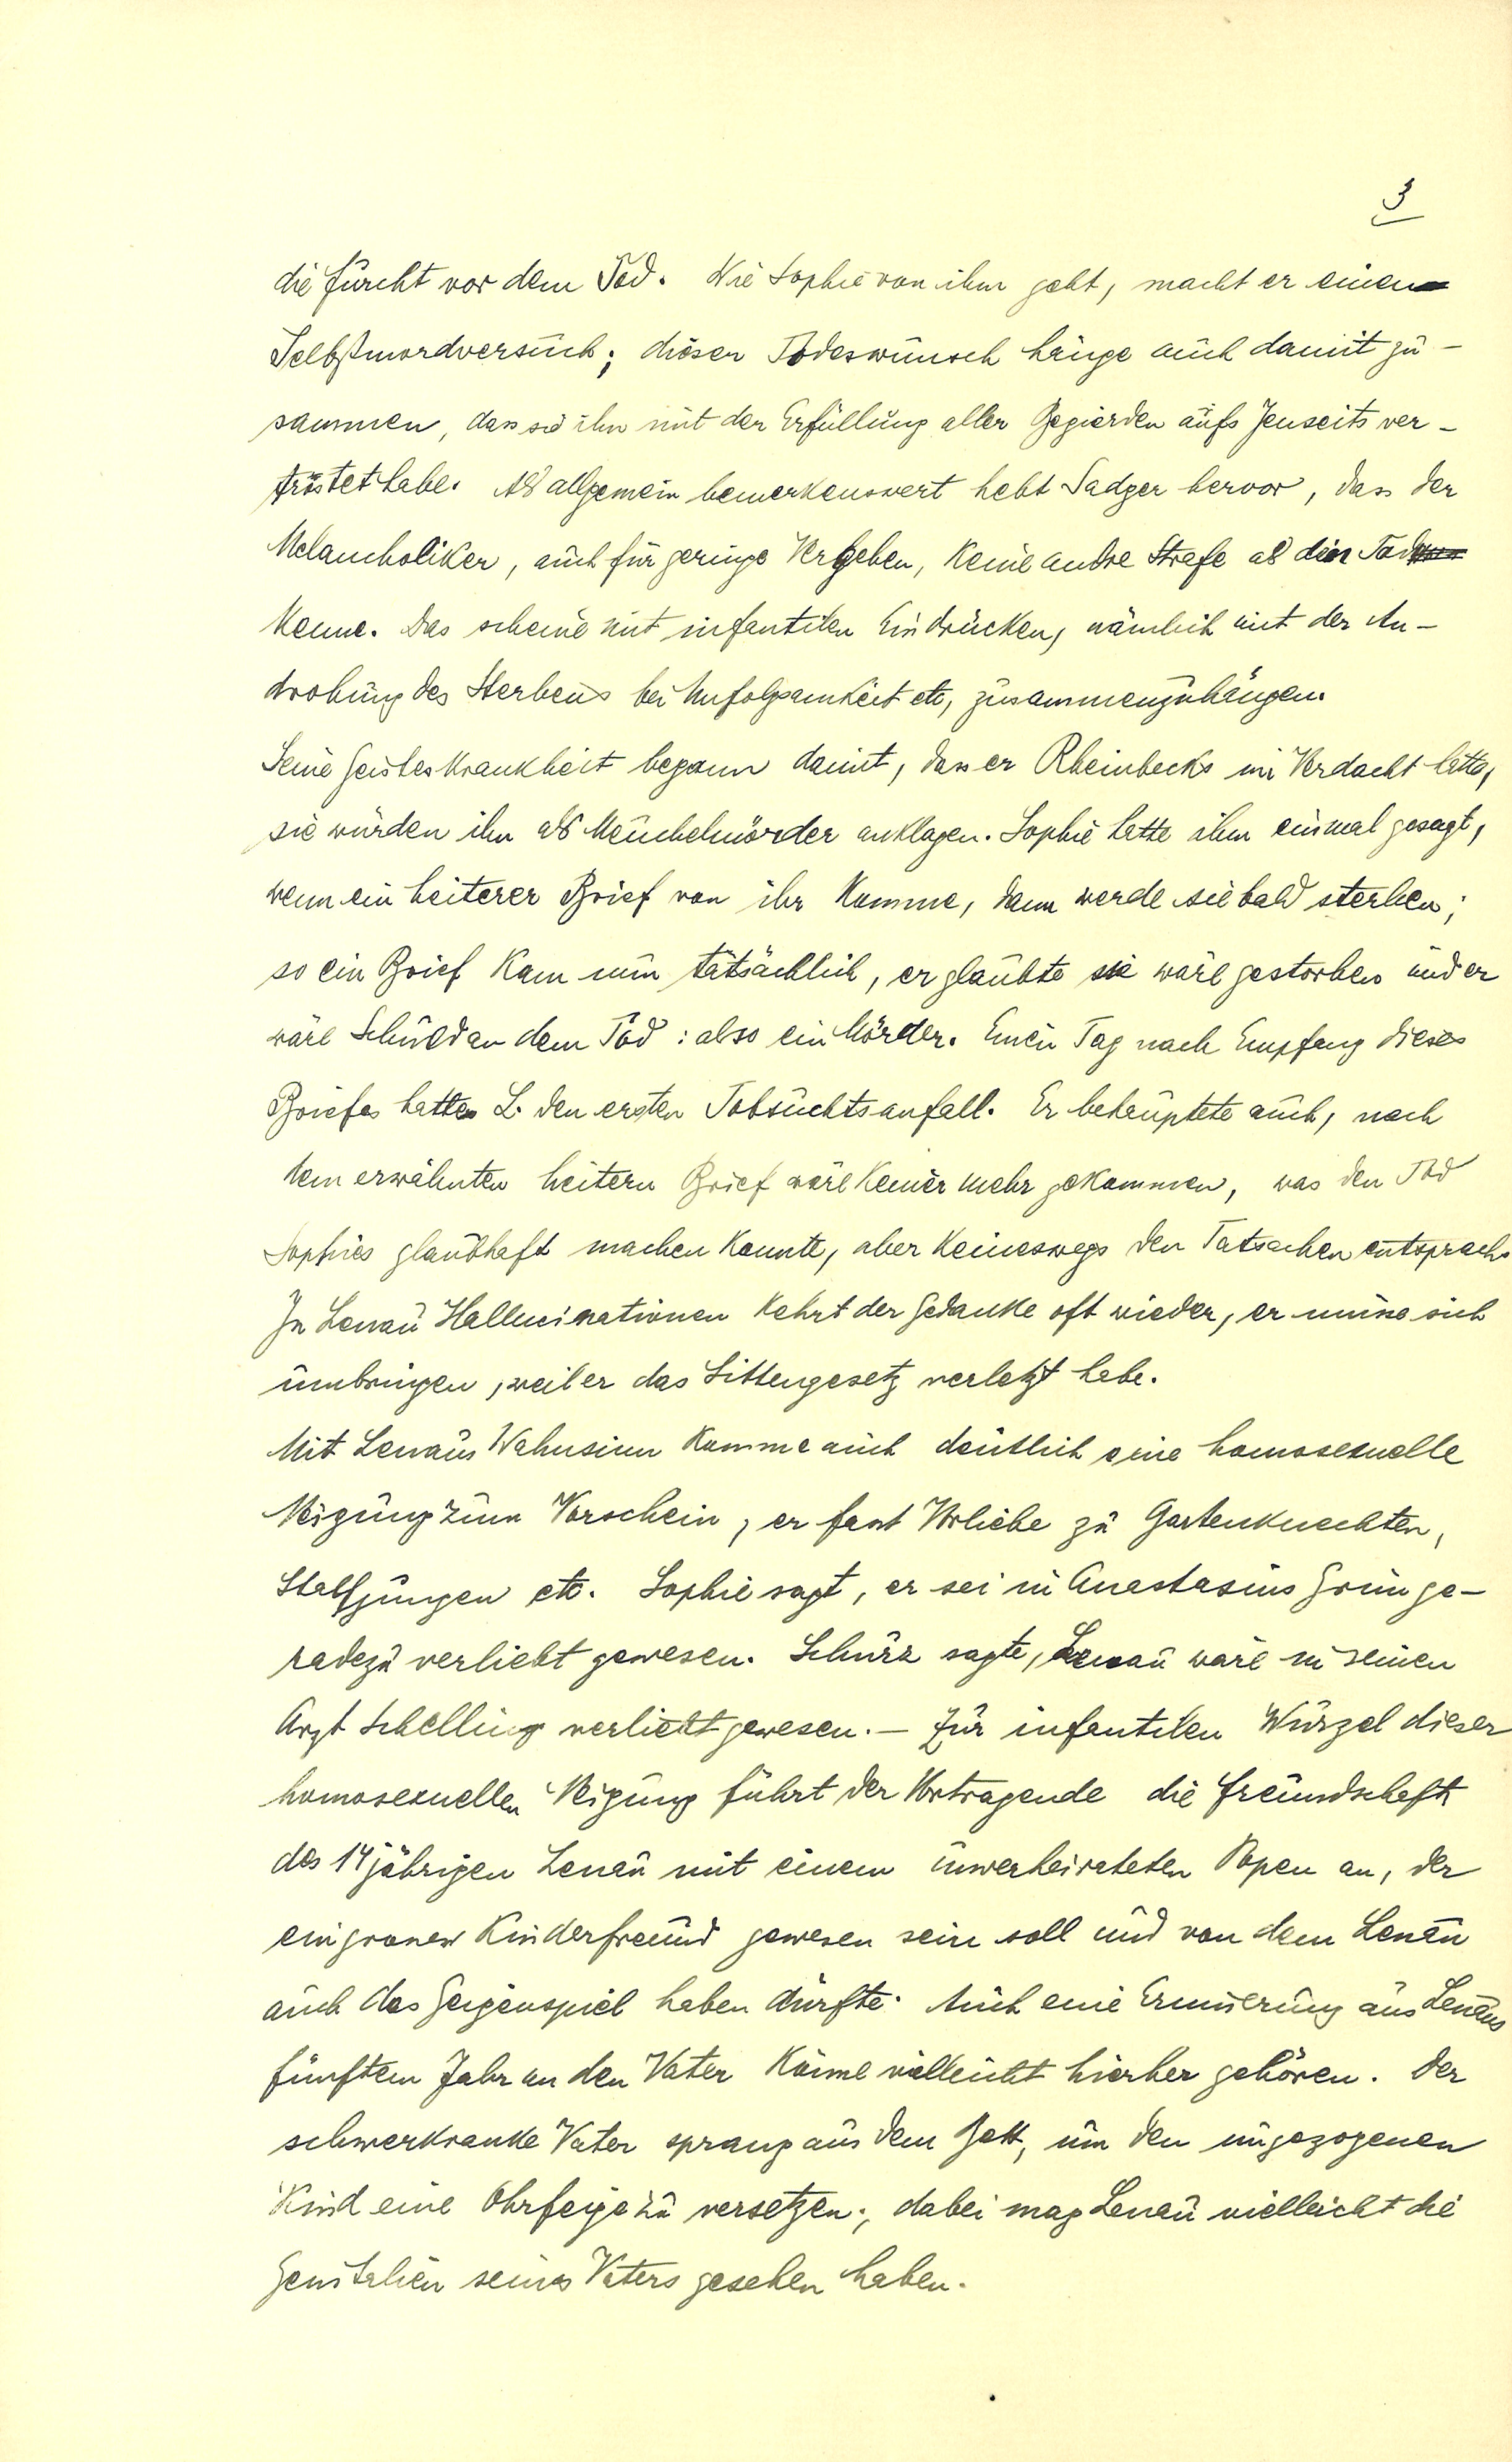 3
die Furcht vor dem Tod. Wie Sophie von ihm geht, macht er einen
Selbstmordversuch; dieser Todeswunsch hänge auch damit zu-
sammen, dass sie ihn mit der Erfüllung aller Begierden aufs Jenseits ver-
tröstet habe. Als allgemein bemerkenswert hebt Sadger hervor, dass der
Melancholiker, auch für geringe Vergehen, keine andre Strafe als den Tod
kenne. Das scheine mit infantilen Eindrücken, nämlich mit der An-
drohung des Sterbens bei Unfolgsamkeit etc, zusammenzuhängen.
Seine Geisteskrankheit begann damit, dass er Rheinbecks im Verdacht hatte,
sie würden ihn als Meuchelmörder anklagen. Sophie hatte ihm einmal gesagt,
wenn ein heiterer Brief von ihr komme, dann werde sie bald sterben;
so ein Brief kam nun tatsächlich, er glaubte sie wäre gestorben und er
wäre Schuld an dem Tod: also ein Mörder. Einen Tag nach Empfang dieses
Briefes hatte L. den ersten Tobsuchtsanfall. Er behauptete auch, nach
dem erwähnten heitern Brief wäre keiner mehr gekommen, was den Tod
Sophies glaubhaft machen konnte, aber keineswegs den Tatsachen entsprach.
In Lenau Hallucinationen kehrt der Gedanke oft wieder, er müsse sich
umbringen, weil er das Sittengesetz verletzt habe.
Mit Lenaus Wahnsinn komme auch deutlich eine homosexuelle
Neigung zum Vorschein, er fasst Vorliebe zu Gartenknechten,
Stalljungen etc. Sophie sagt, er sei in Anastasius Grün ge-
radezu verliebt gewesen. Schurz sagte, Lenau wäre in seinen
Arzt Schelling verliebt gewesen. – Zur infantilen Wurzel dieser
homosexuellen Neigung führt der Vortragende die Freundschaft
des 14jährigen Lenau mit einem unverheirateten Popen an, der
ein grosser Kinderfreund gewesen sein soll und von dem Lenau
auch das Geigenspiel haben dürfte. Auch eine Erinnerung aus Lenaus
fünftem Jahr an den Vater käme vielleicht hierher gehören. Der
schwerkranke Vater sprang aus dem Bett, um den ungezogenen
Kind eine Ohrfeige zu versetzen; dabei mag Lenau vielleicht die
Genitalien seines Vaters gesehen haben.